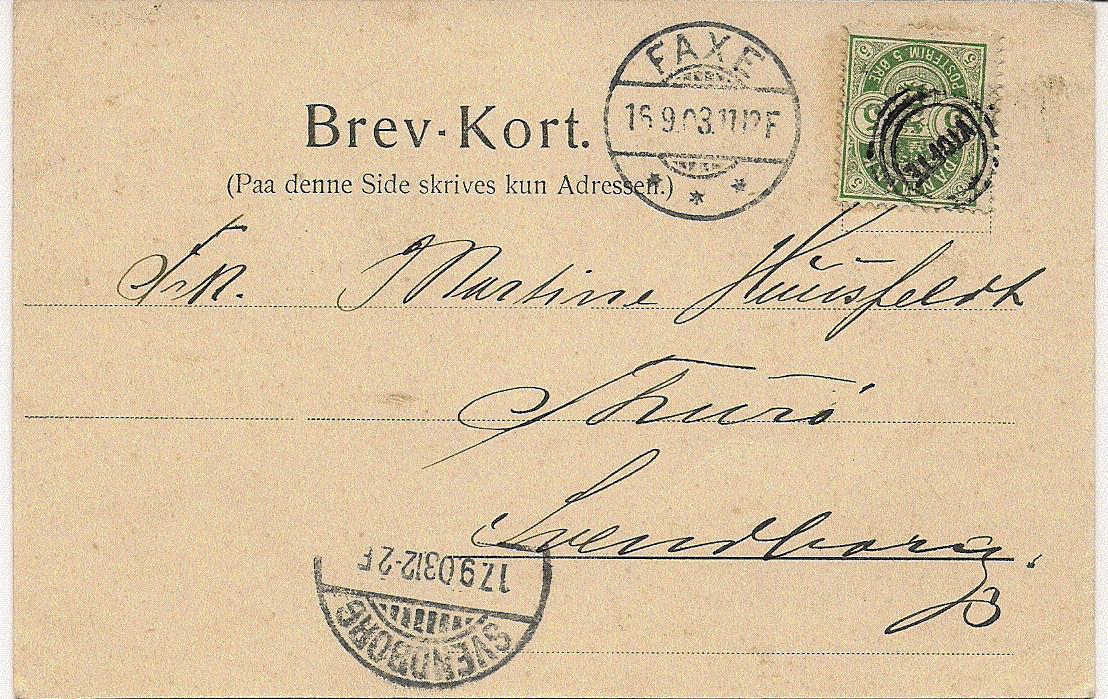 FAXE
16.9.03.11-12F
POSTFRIM. 5 ØRE
5 5
DANMARK
Brev-Kort.
(Paa denne Side skrives kun Adressen.)
Frk. Martine Huusfeldt
Thurö
Svendborg.
17.9.03 12-2F
SVENDBORG